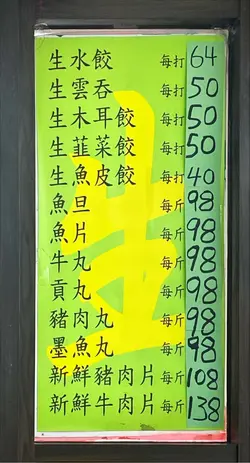 生水餃 每打 64
生雲吞 每打 50
生木耳餃 每打 50
生韮菜餃 每打 50
生魚皮餃 每打 40
魚旦 每斤 98
魚片 每斤 98
牛丸 每斤 98
貢丸 每斤 98
豬肉丸 每斤 98
墨魚丸 每斤 98
新鮮豬肉片 每斤 108
新鮮牛肉片 每斤 138
生